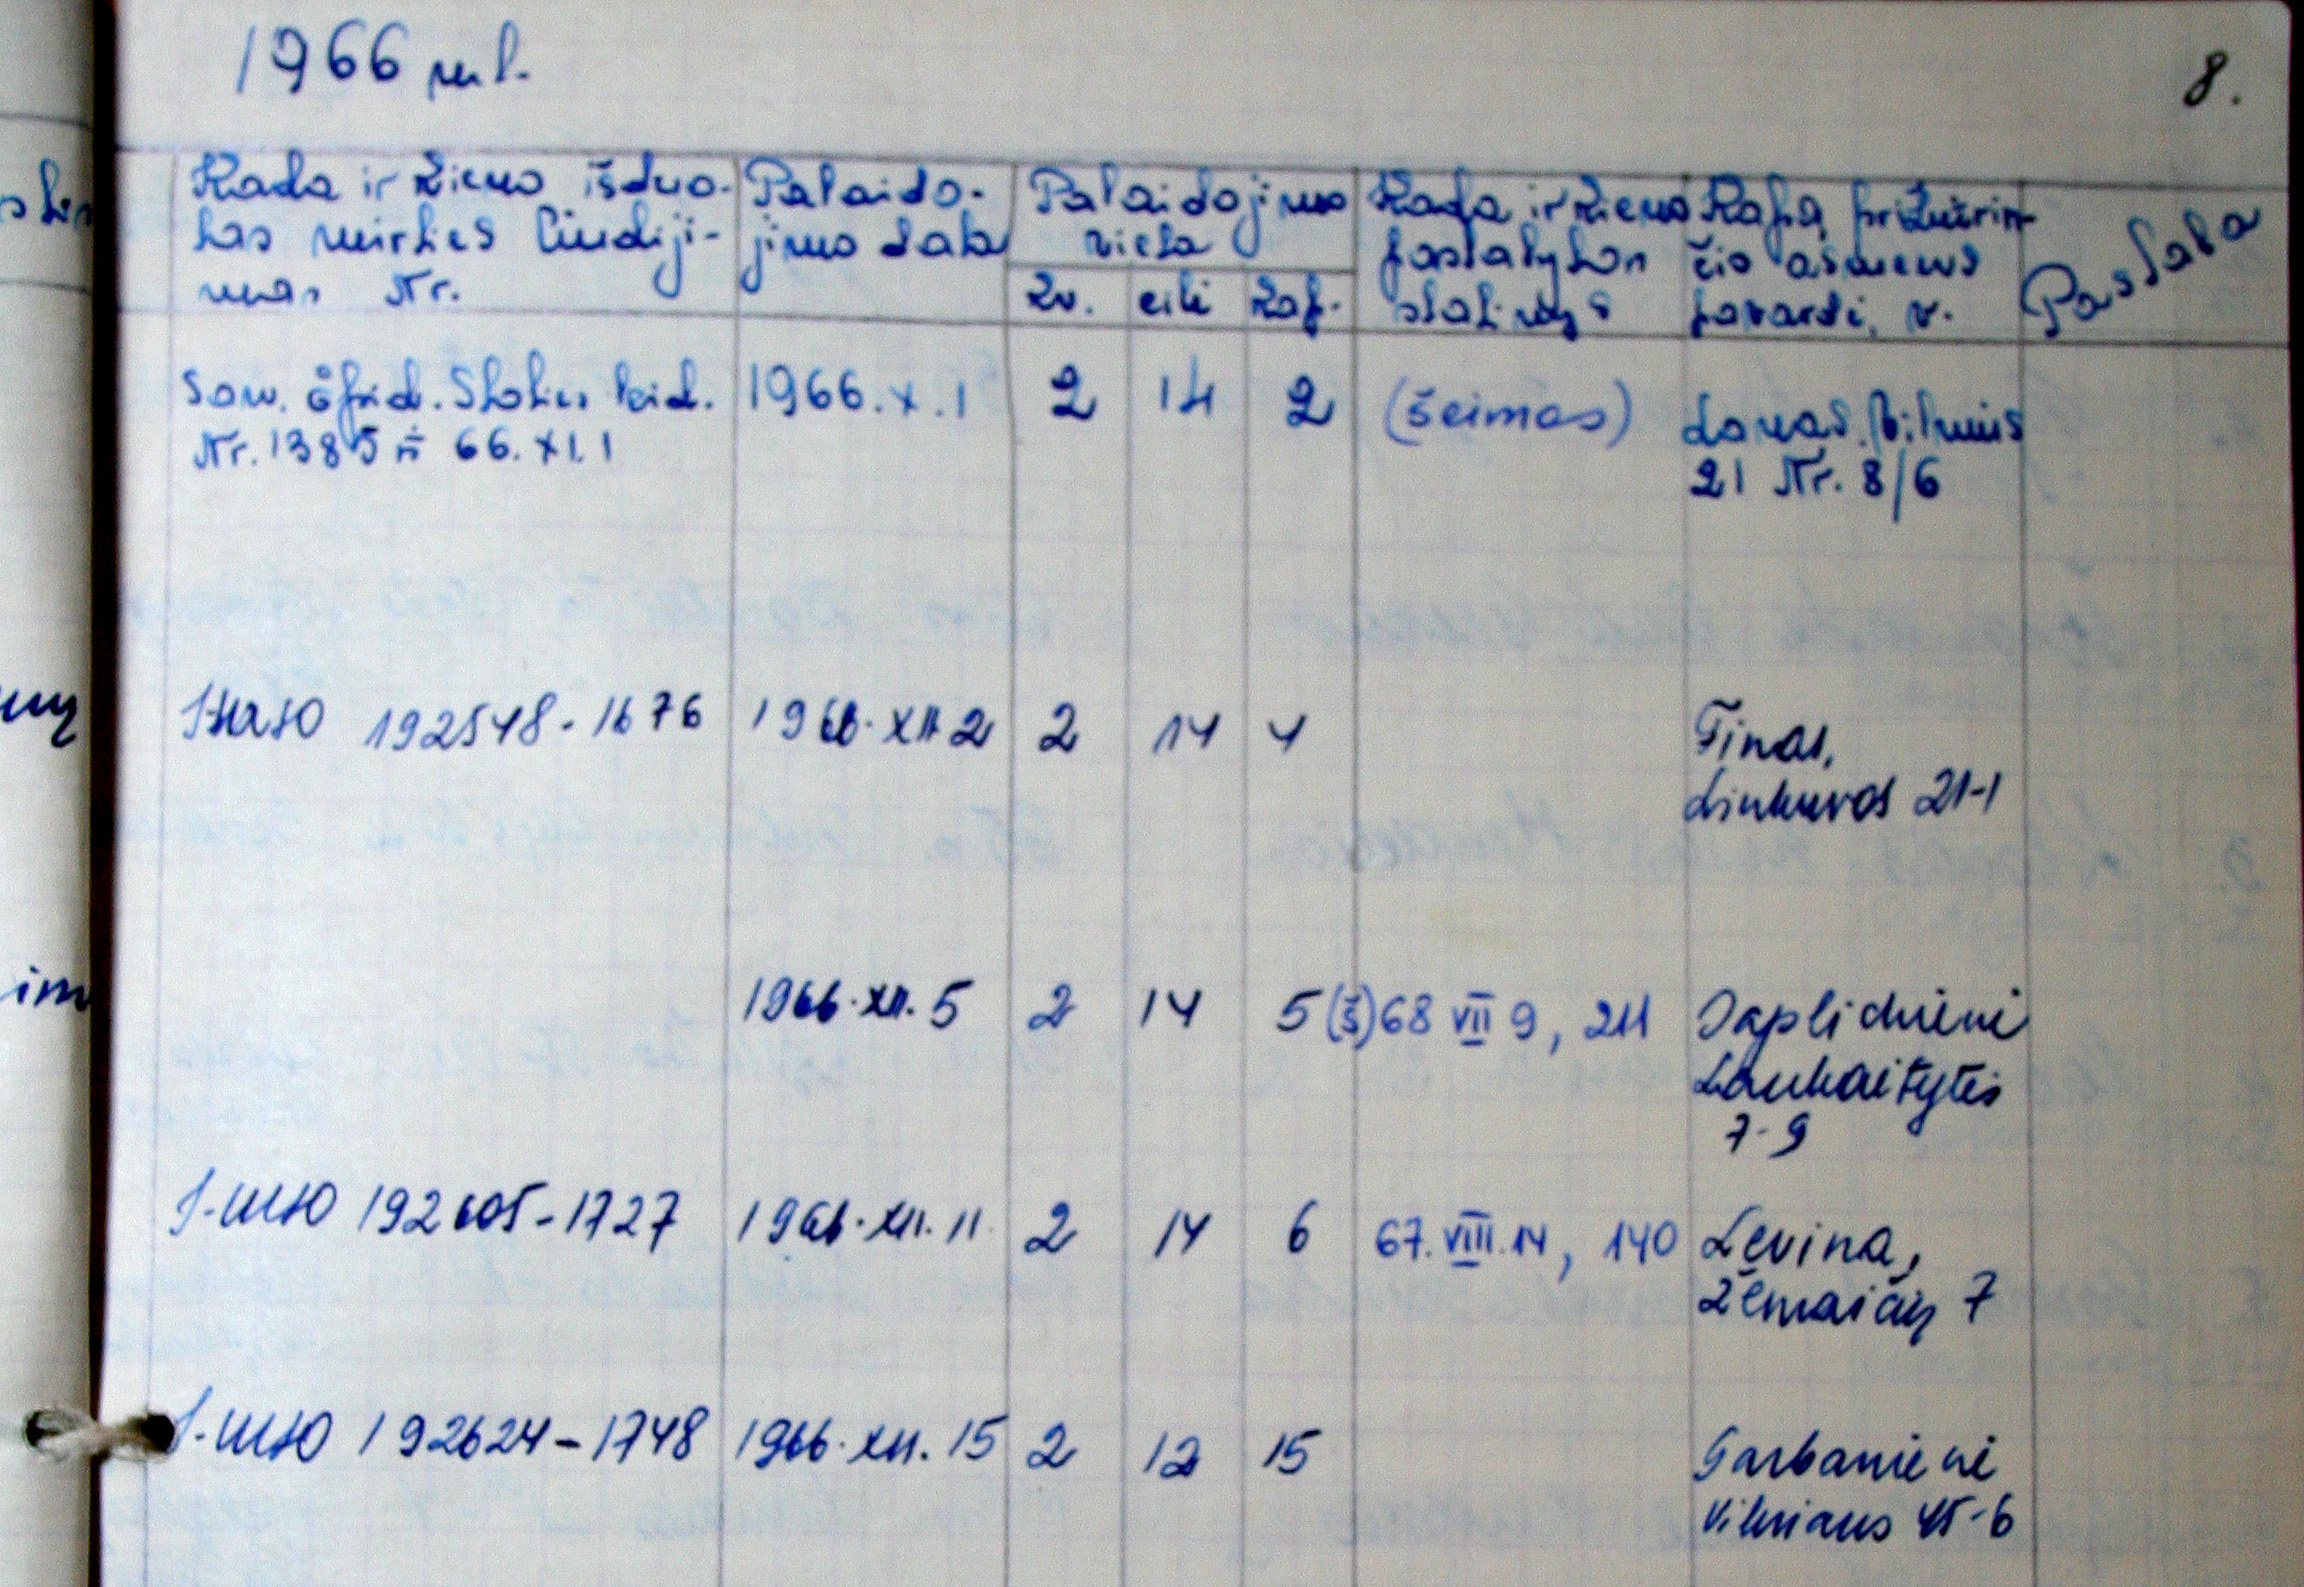 1966 m.
8.
Kada ir kieno išduo-
tas mirties liudiji-
mas Nr.
Palaido-
jimo data
Palaidojimo
vieta
kv. eilė kap.
Kada ir kieno
pastatytas
Kapą prižiūrin-
čio asmens
pavardė, v.
Pastaba
Nr. 1385 66.XI.1
1966.X.1 2 14 2 (šeimos)
Vilnius
21 Nr. 8/6
192548-1676 1966.XII.2 2 14 4
Finas,
Linkuvos 21-1
1966.XII.5 2 14 5 (š) 68 VII 9, 211
7-9
192605-1727 1966.XII.11 2 14 6 67.VIII.14, 140 Levina,
Žemaičių 7
192624-1748 1966.XII.15 2 12 15
Garbanienė
Vilniaus 45-6